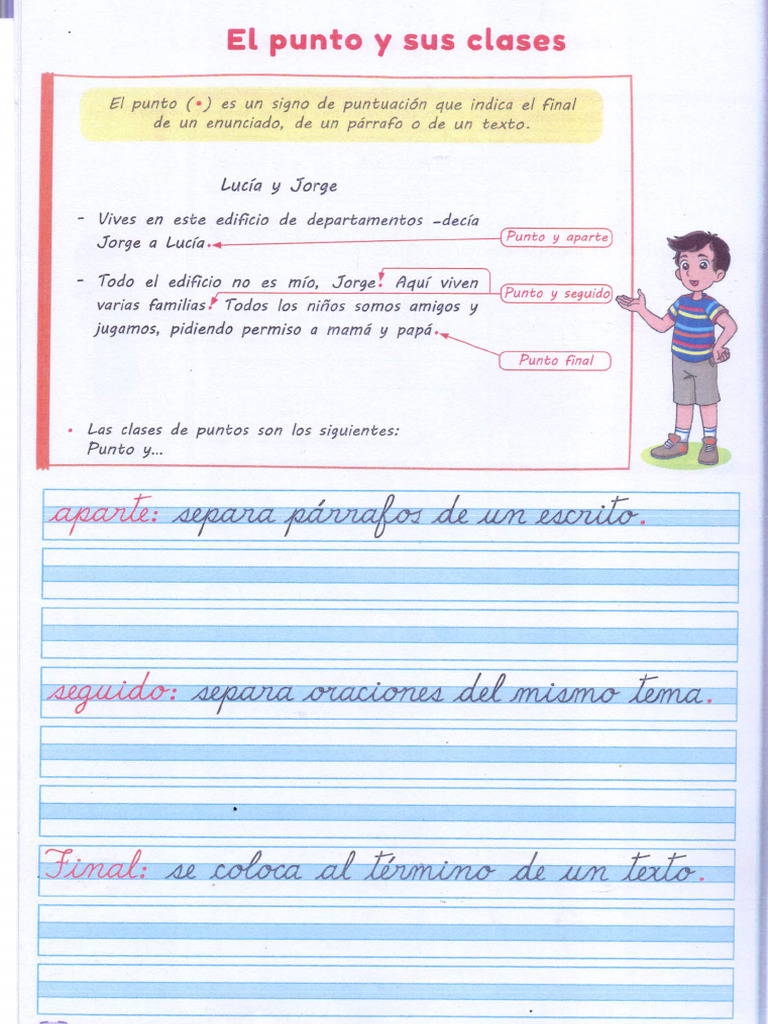 El punto y sus clases
El punto (•) es un signo de puntuación que indica el final
de un enunciado, de un párrafo o de un texto.
Lucía y Jorge
- Vives en este edificio de departamentos -decía
Jorge a Lucía.
Punto y aparte
- Todo el edificio no es mío, Jorge. Aquí viven
varias familias. Todos los niños somos amigos y
jugamos, pidiendo permiso a mamá y papá.
Punto y seguido
Punto final
• Las clases de puntos son los siguientes:
Punto y...
aparte: separa párrafos de un escrito.
seguido: separa oraciones del mismo tema.
Final: se coloca al término de un texto.